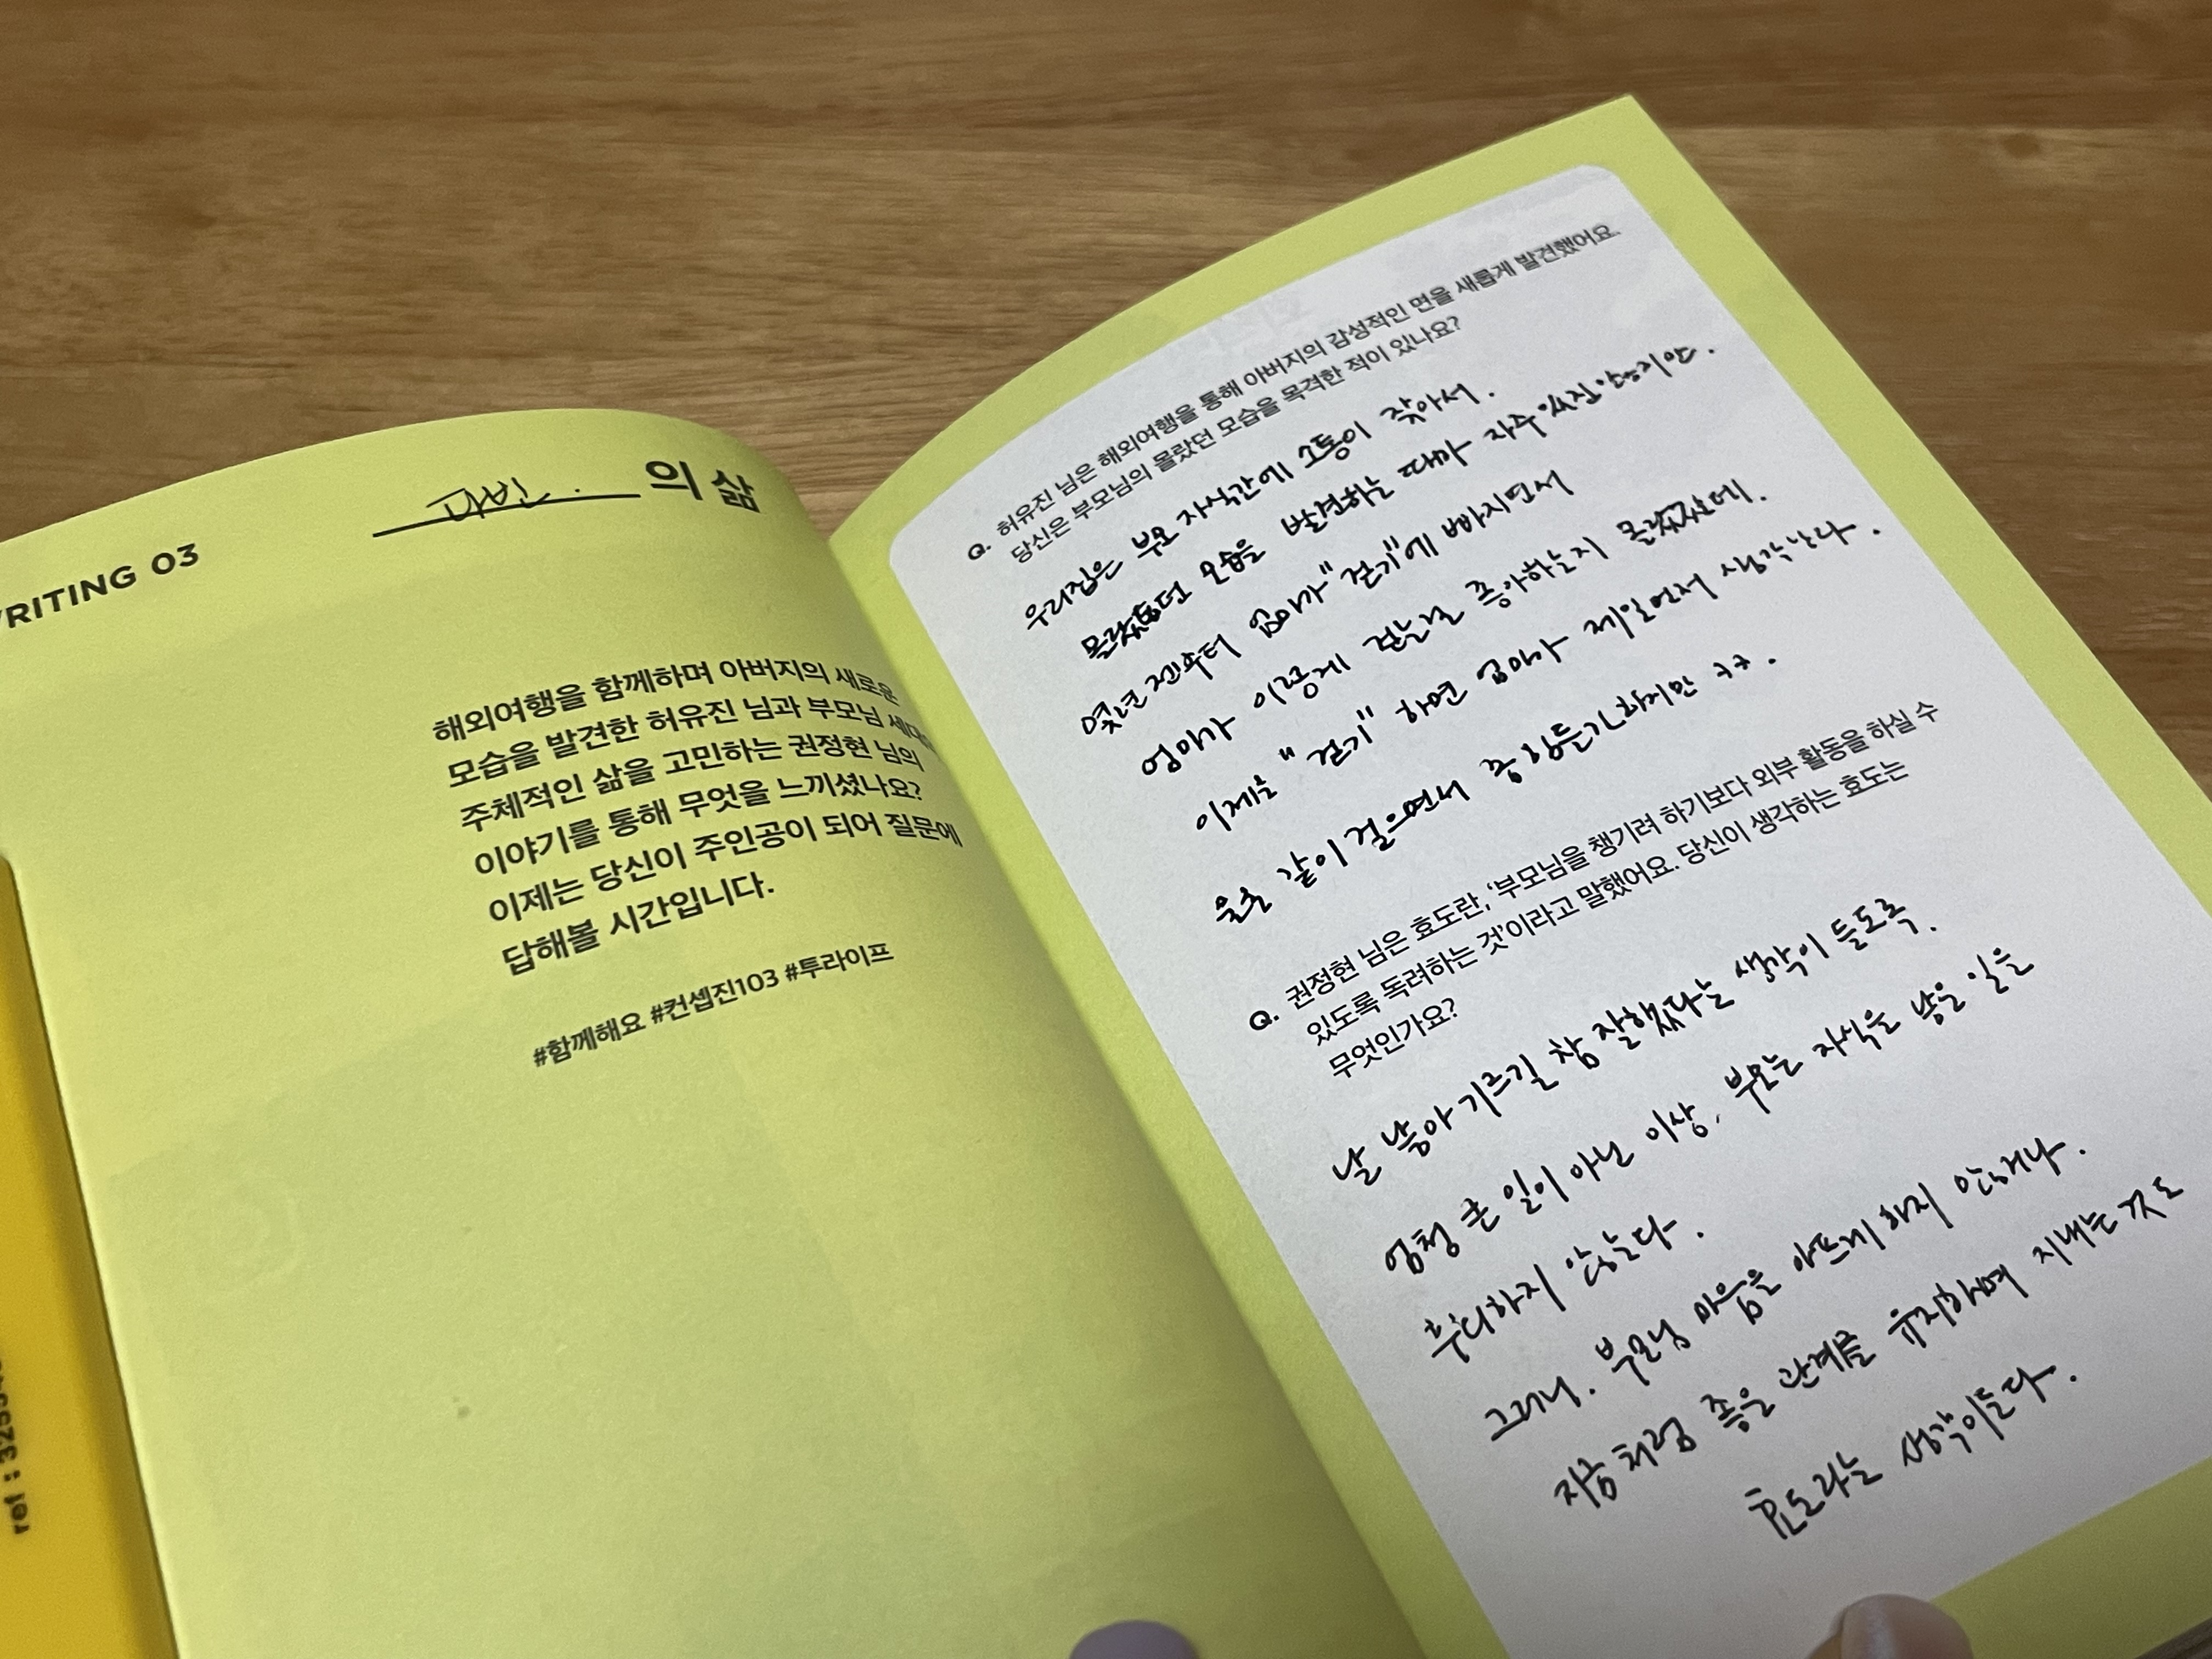 WRITING 03
다빈. 의 삶
해외여행을 함께하며 아버지의 새로운
모습을 발견한 허유진 님과 부모님 세대의
주체적인 삶을 고민하는 권정현 님의
이야기를 통해 무엇을 느끼셨나요?
이제는 당신이 주인공이 되어 질문에
답해볼 시간입니다.
#함께해요 #컨셉진103 #투라이프
Q. 허유진 님은 해외여행을 통해 아버지의 감성적인 면을 새롭게 발견했어요.
당신은 부모님의 몰랐던 모습을 목격한 적이 있나요?
우리집은 부모 자식간에 소통이 잦아서.
몰랐던 모습을 발견하는 때마 자주 있진 않지만.
몇년 전부터 엄마가 "걷기"에 빠지면서
엄마가 이렇게 걷는걸 좋아하는지 몰랐었네.
이제는 "걷기" 하면 엄마가 제일먼저 생각난다.
같이 걸으면서 중 힘들긴하지만 ㅋㅋ.
Q. 권정현 님은 효도란, ‘부모님을 챙기려 하기보다 외부 활동을 하실 수
있도록 독려하는 것’이라고 말했어요. 당신이 생각하는 효도는
무엇인가요?
날 낳아 기르길 참 잘했다는 생각이 들도록.
엄청 큰 일이 아닌 이상, 부모는 자식을 낳은 일을
후회하지 않는다.
그러니. 부모님 마음을 아프게 하지 않거나.
지금처럼 좋은 관계를 유지하며 지내는 것도
효도라는 생각이든다.